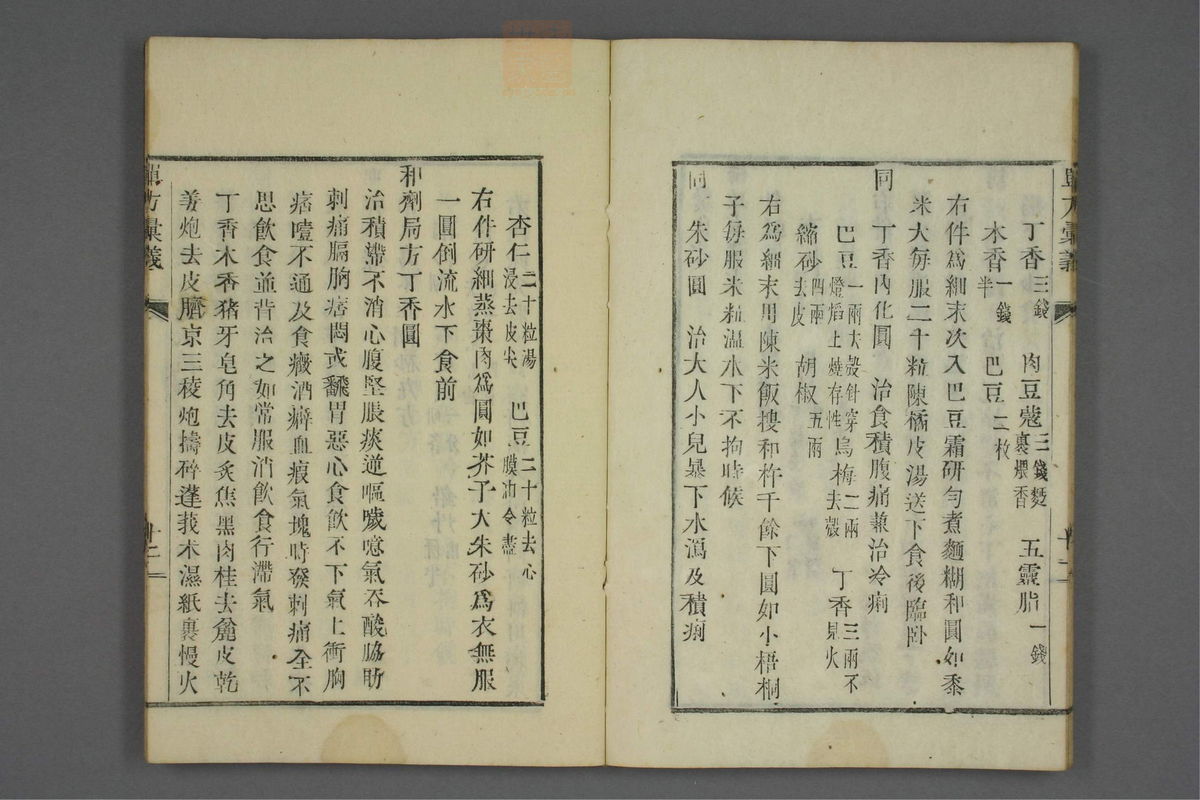 丁香三錢 肉豆蔻三錢麪裹煨香 五靈脂一錢
木香一錢半 巴豆二枚
右件爲細末次入巴豆霜研勻煮麵糊和圓如黍
米大每服二十粒陳橘皮湯送下食後臨卧
同 丁香內化圓 治食積腹痛兼治冷痢
巴豆一兩大殼針穿燈熖上燒存性 烏梅二兩去殼 丁香三兩不見火
縮砂四兩去皮 胡椒五兩
右爲細末用陳米飯摟和杵千餘下圓如小梧桐
子每服米粒溫水下不拘時候
同 朱砂圓 治大人小兒暴下水瀉及積痢
杏仁二十粒湯浸去皮尖 巴豆二十粒去心膜油令盡
右件研細蒸棗肉爲圓如芥子大朱砂爲衣無服
一圓倒流水下食前
和劑局方丁香圓
治積滯不消心腹堅脹痰逆嘔噦噫氣吞酸脇肋
刺痛膈胸痞悶或飜胃惡心食飲不下氣上衝胸
痞噎不通及食癥酒癖血瘕氣塊時發刺痛全不
思飲食並皆治之如常服消飲食行滯氣
丁香木香猪牙皂角去皮炙焦黑肉桂去麄皮乾
姜炮去皮臍京三稜炮擣碎蓬莪朮濕紙裹慢火
單方彙義
十二